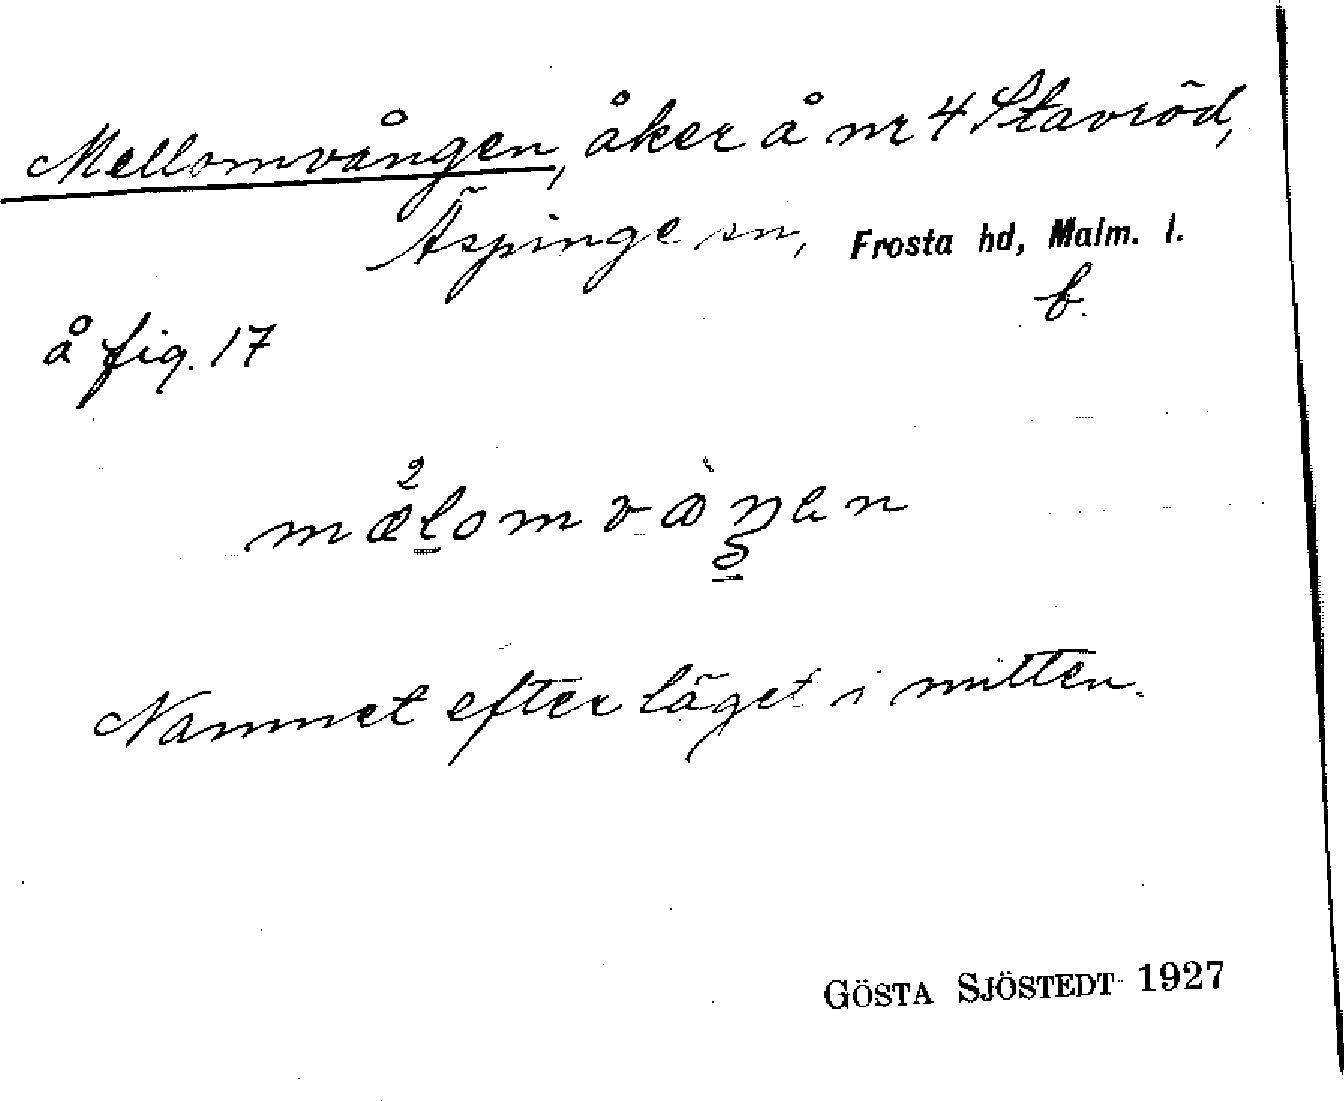 Mellomvången, åker å nr 4 Stavröd,
Äspinge sn, Frosta hd, Malm. l.
b.
å fig. 17
Namnet efter läget i mitten.
GÖSTA SJÖSTEDT 1927